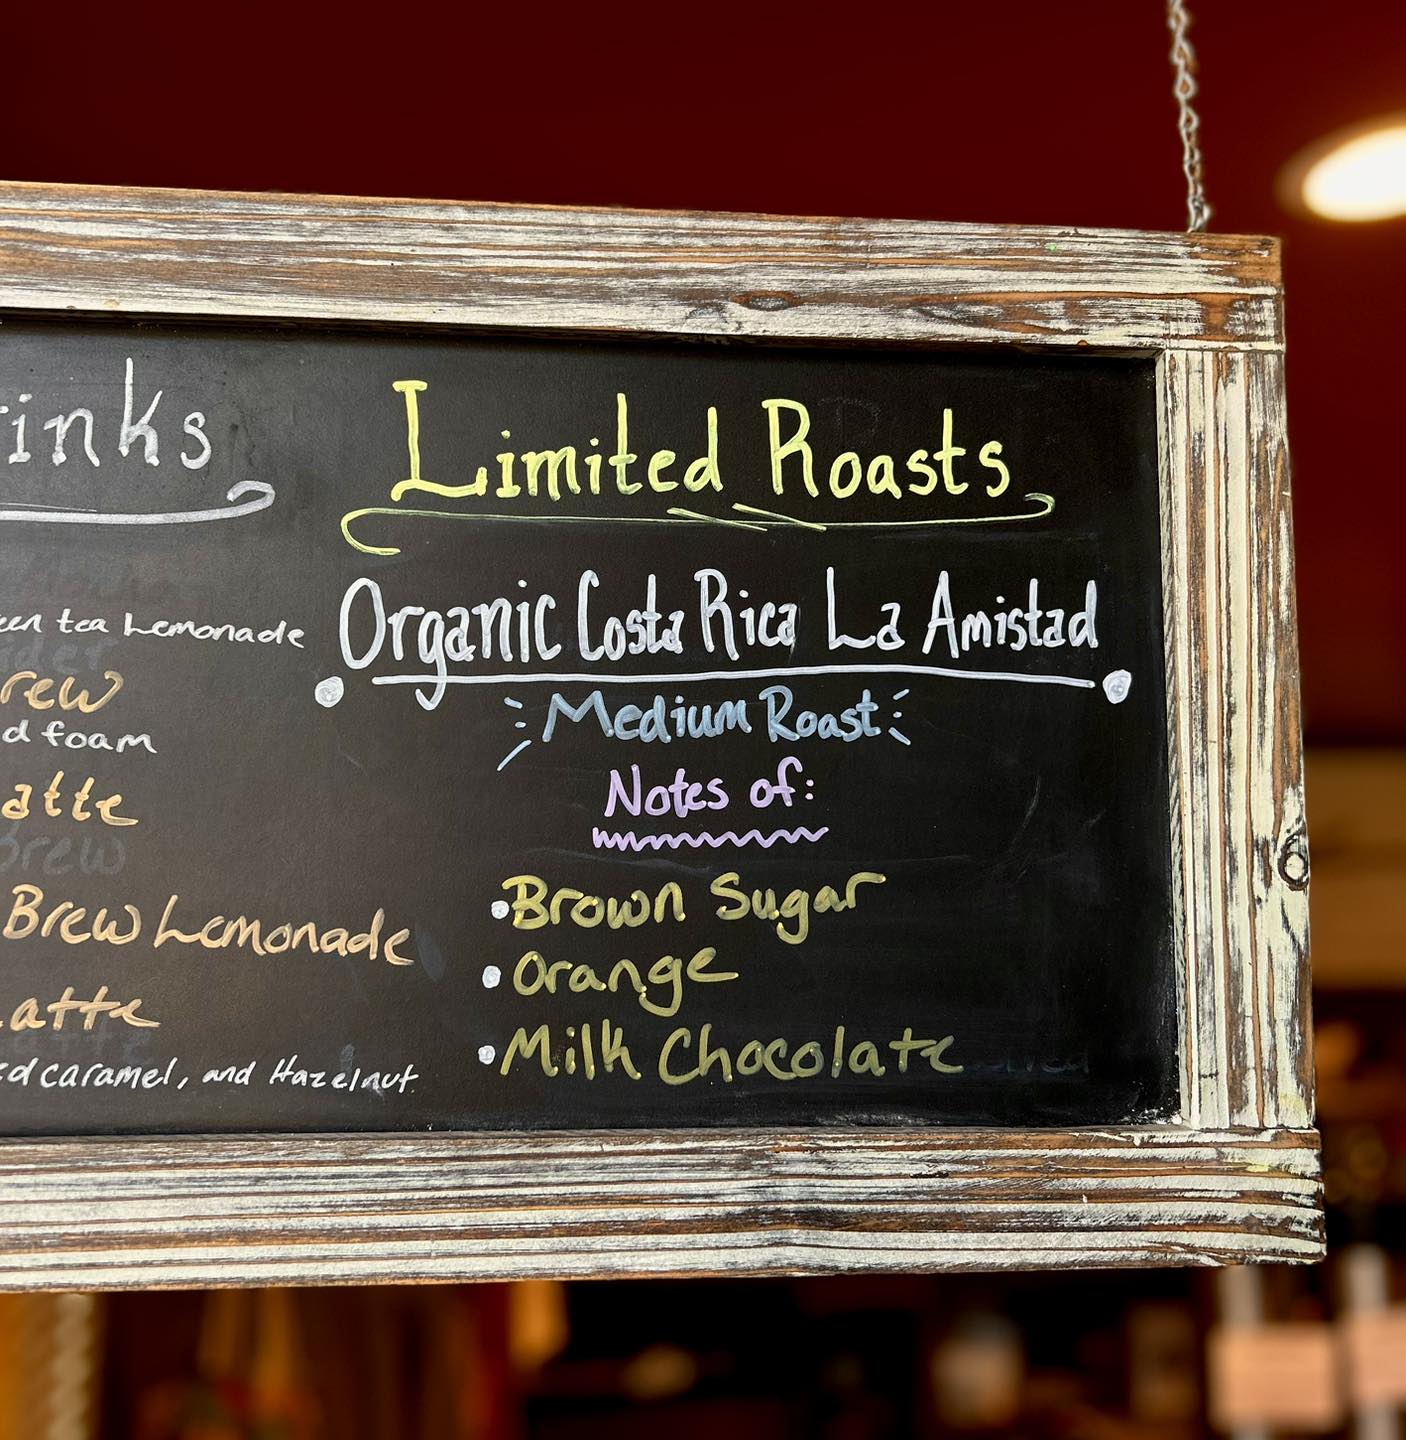 Drinks
Green tea Lemonade
Brew
foam
Latte
Brew Lemonade
Latte
caramel, and Hazelnut
Limited Roasts
Organic Costa Rica La Amistad
Medium Roast
Notes of:
•Brown Sugar
•Orange
•Milk Chocolate